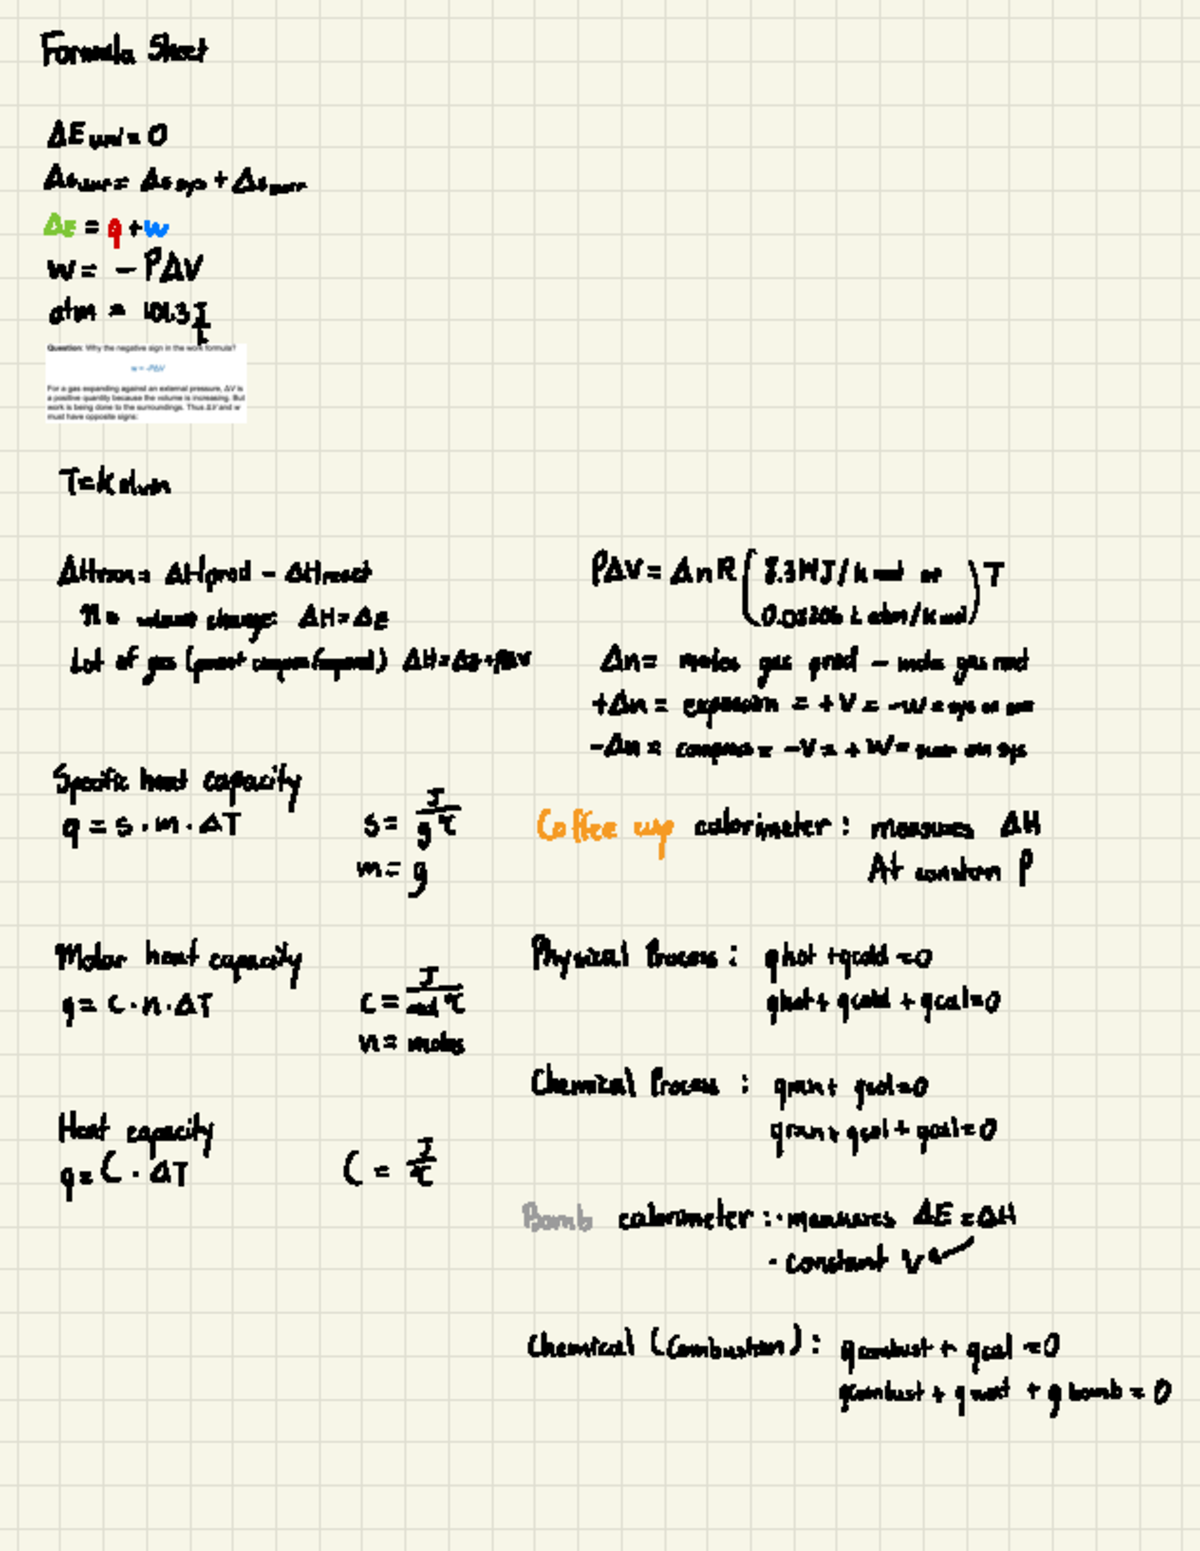 Formula Sheet
ΔE uni = 0
ΔE = q + w
w = - PΔV
atm = 101.3 J/L
Question: Why the negative sign in the work formula?
w = -PΔV
For a gas expanding against an external pressure, ΔV is
a positive quantity because the volume is increasing. But
work is being done to the surroundings. Thus ΔV and w
must have opposite signs:
T = Kelvin
ΔHrxn = ΔHprod - ΔHreact
ΔH = ΔE
Lot of gas ΔH = ΔE + PΔV
PΔV = ΔnR ( 8.314J/K mol or ) T
0.08206 L atm/K mol
Δn = moles gas prod - moles gas
+Δn = expansion = +V = -W = sys on surr
-Δn = compress = -V = +W = surr on sys
Specific heat capacity
q = s · m · ΔT
s = J/g°C
m = g
Coffee cup calorimeter: measures ΔH
At constan P
Molar heat capacity
q = C · n · ΔT
C = J/mol °C
n = moles
Physical Process: qhot + qcold = 0
qhot + qcold + qcal = 0
Chemical Process: qrxn + qsol = 0
qrxn + qsol + qcal = 0
Heat capacity
q = C · ΔT
C = J/°C
Bomb calorimeter: · measures ΔE = ΔH
· constant V
Chemical (Combustion): qcombust + qcal = 0
qcombust + q + q bomb = 0